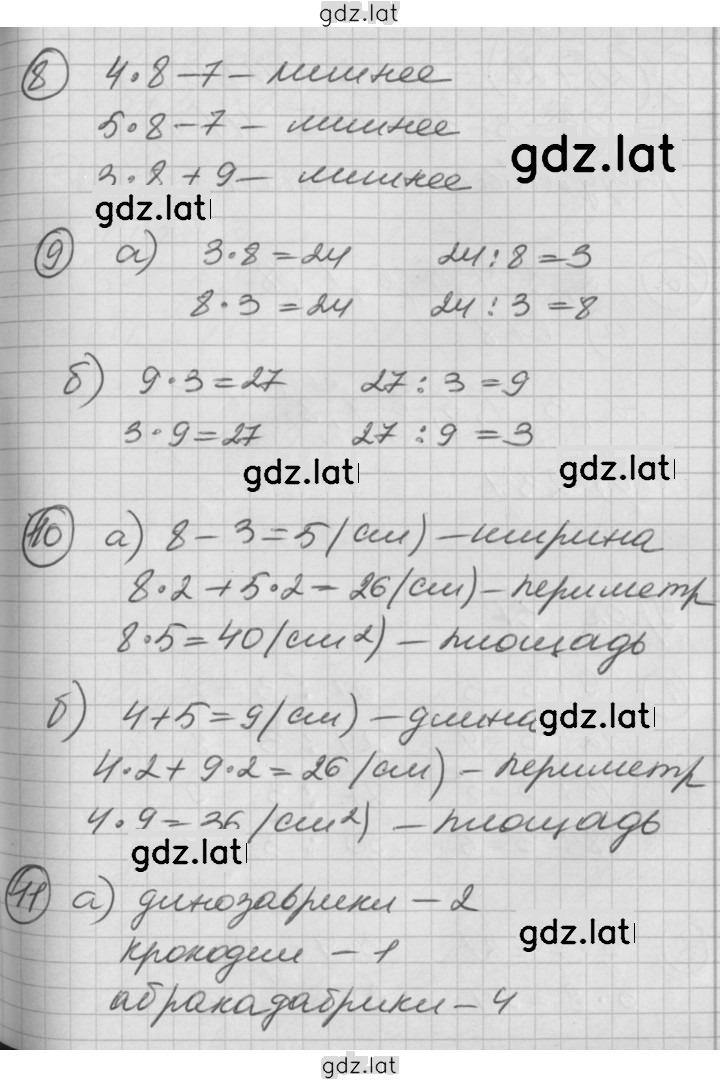 gdz.lat
8 4·8-7 - лишнее
5·8-7 - лишнее
gdz.lat
3·8+9 - лишнее
gdz.lat
9 а) 3·8=24 24:8=3
8·3=24 24:3=8
б) 9·3=27 27:3=9
3·9=27 27:9=3
gdz.lat gdz.lat
10 а) 8-3=5(см) - ширина
8·2+5·2=26(см) - периметр
8·5=40(см²) - площадь
б) 4+5=9(см) - длина gdz.lat
4·2+9·2=26(см) - периметр
4·9=36(см²) - площадь
gdz.lat
11 а) динозаврики - 2
gdz.lat
крокодил - 1
абракадабрики - 4
gdz.lat